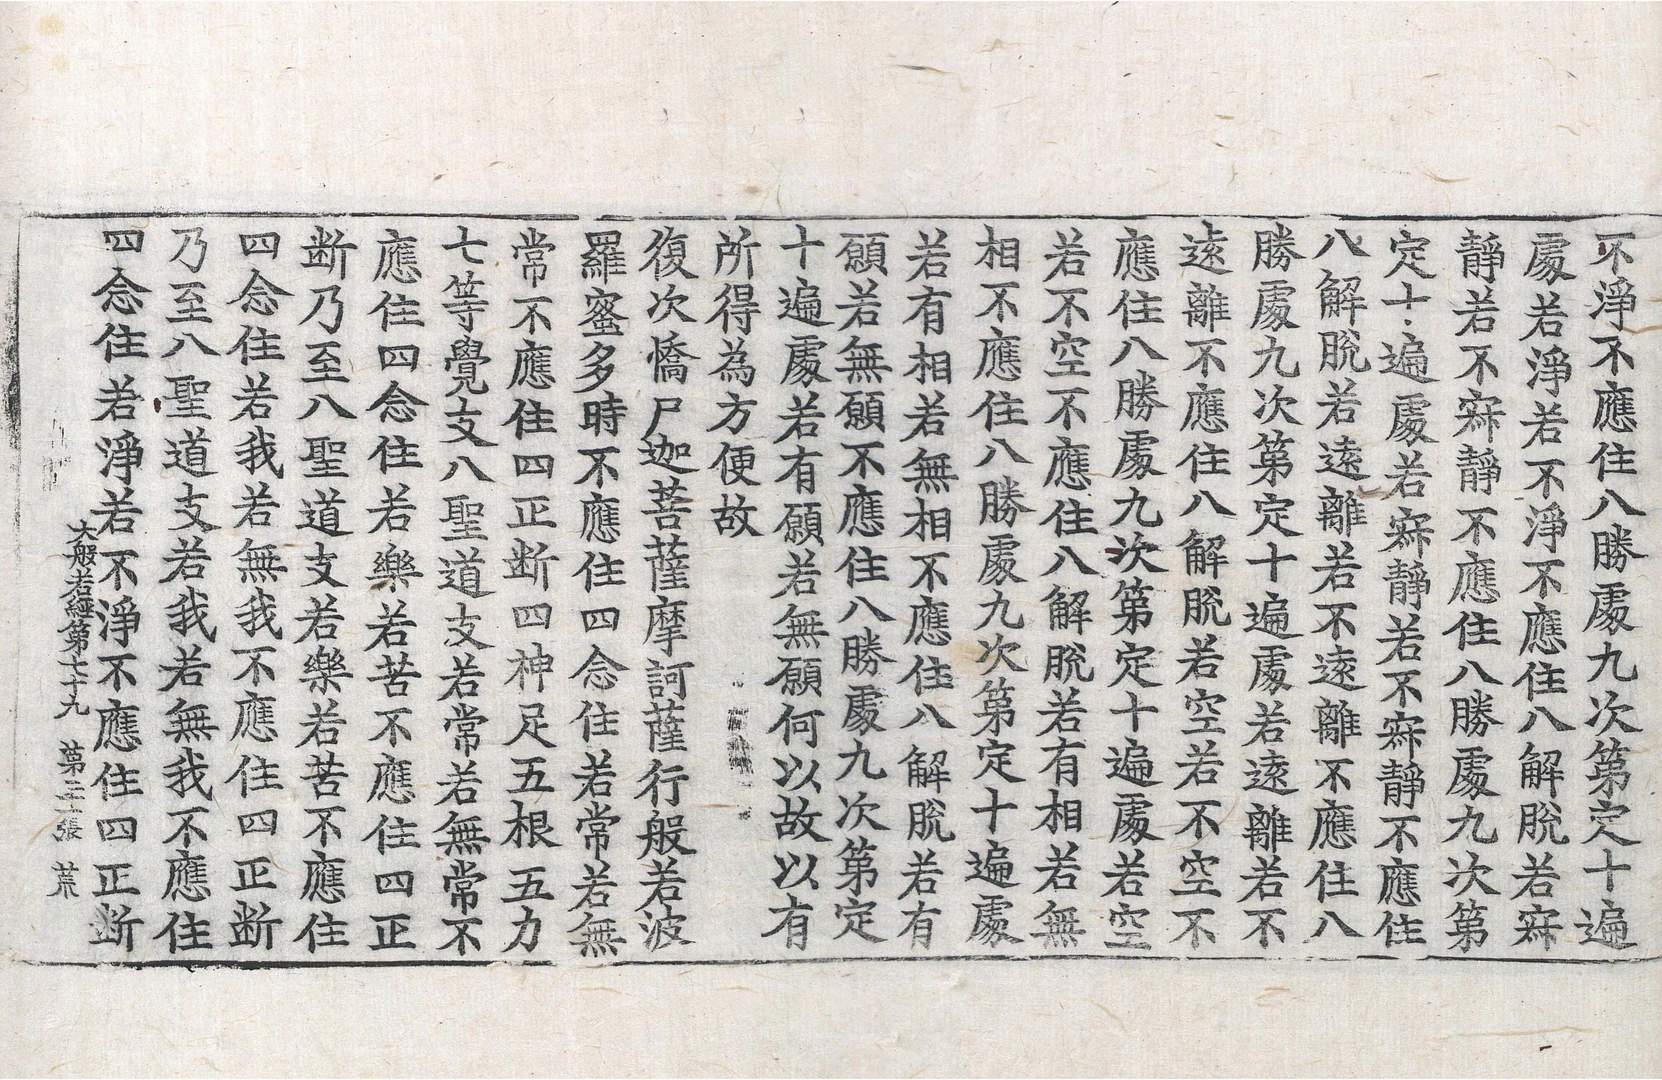 不淨不應住八勝處九次第定十遍
處若淨若不淨不應住八解脫若寂
靜若不寂靜不應住八勝處九次第
定十遍處若寂靜若不寂靜不應住
八解脫若遠離若不遠離不應住八
勝處九次第定十遍處若遠離若不
遠離不應住八解脫若空若不空不
應住八勝處九次第定十遍處若空
若不空不應住八解脫若有相若無
相不應住八勝處九次第定十遍處
若有相若無相不應住八解脫若有
願若無願不應住八勝處九次第定
十遍處若有願若無願何以故以有
所得為方便故
復次憍尸迦菩薩摩訶薩行般若波
羅蜜多時不應住四念住若常若無
常不應住四正断四神足五根五力
七等覺支八聖道支若常若無常不
應住四念住若樂若苦不應住四正
断乃至八聖道支若樂若苦不應住
四念住若我若無我不應住四正断
乃至八聖道支若我若無我不應住
四念住若淨若不淨不應住四正断
大般若經第七十九 第 張 荒